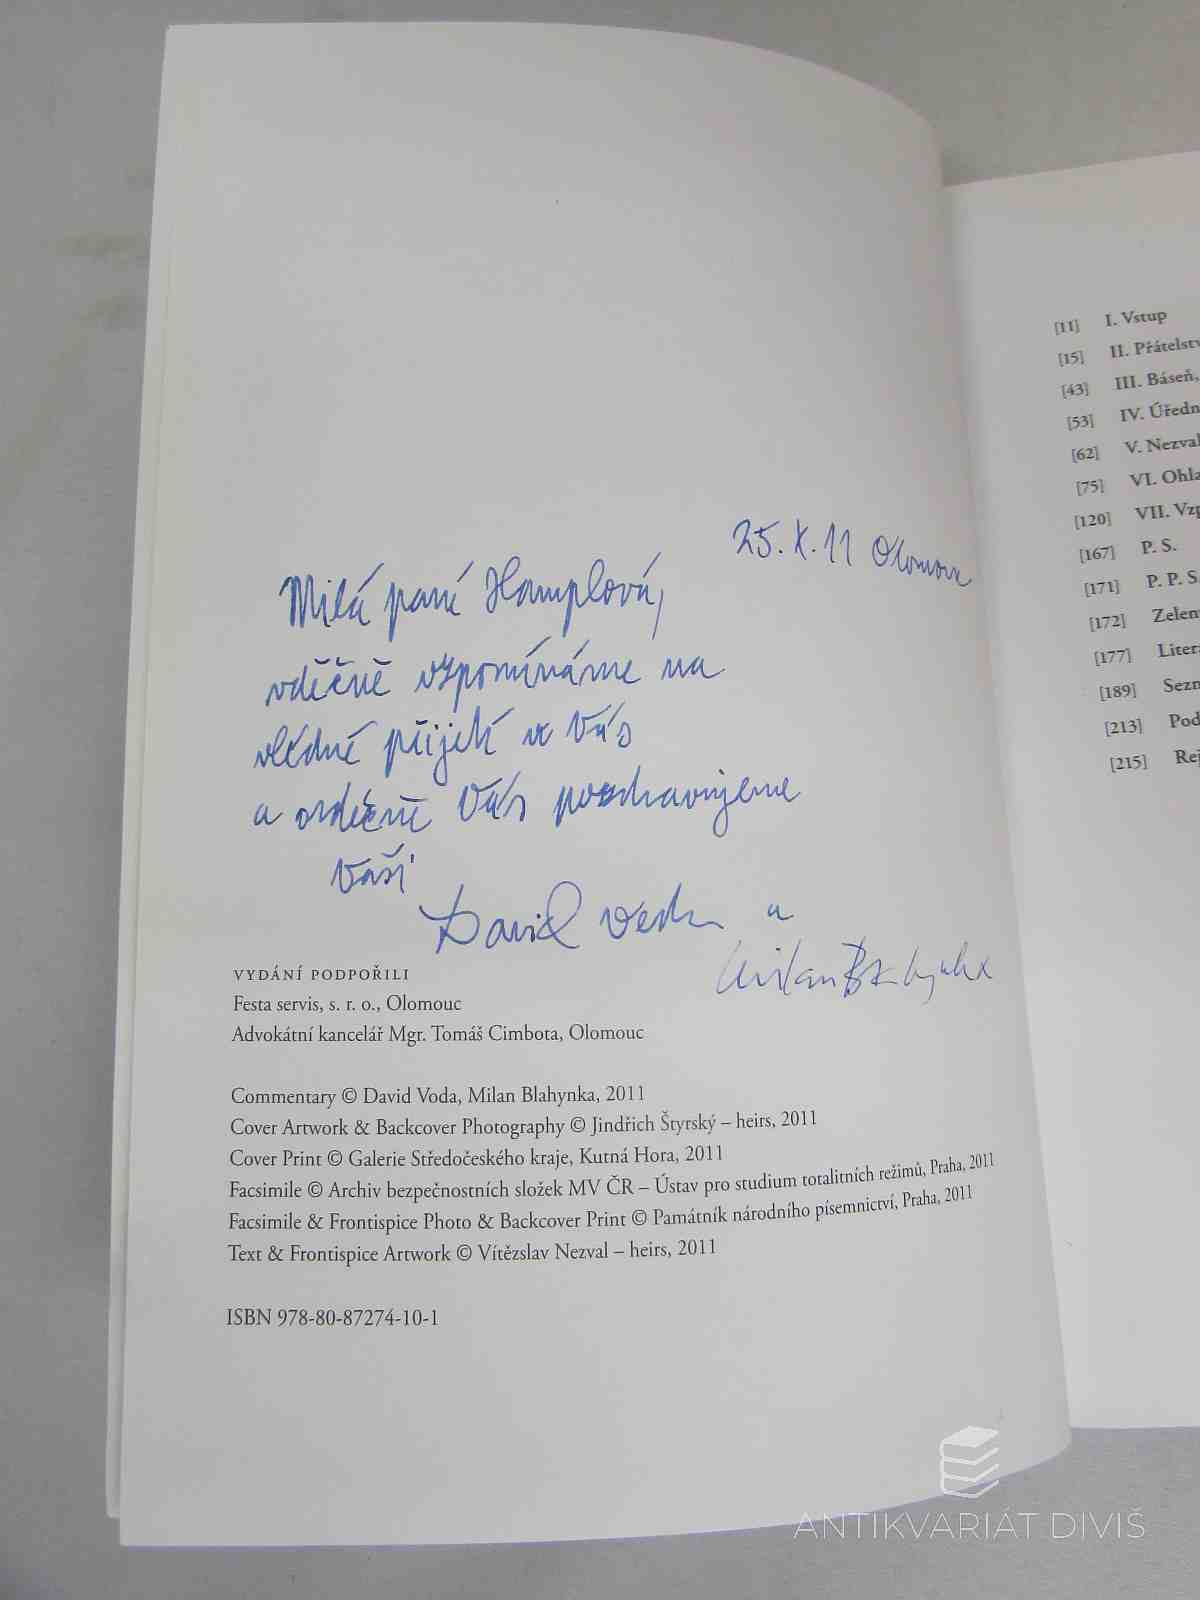 25. X. 11 Olomouc
Milá paní Hamplová,
vděčně vzpomínáme na
vlídné přijetí u Vás
a srdečně Vás pozdravujeme
Vaši
David Voda a
Milan Blahynka
VYDÁNÍ PODPOŘILI
Festa servis, s. r. o., Olomouc
Advokátní kancelář Mgr. Tomáš Cimbota, Olomouc
Commentary © David Voda, Milan Blahynka, 2011
Cover Artwork & Backcover Photography © Jindřich Štyrský – heirs, 2011
Cover Print © Galerie Středočeského kraje, Kutná Hora, 2011
Facsimile © Archiv bezpečnostních složek MV ČR – Ústav pro studium totalitních režimů, Praha, 2011
Facsimile & Frontispice Photo & Backcover Print © Památník národního písemnictví, Praha, 2011
Text & Frontispice Artwork © Vítězslav Nezval – heirs, 2011
ISBN 978-80-87274-10-1
[11] I. Vstup
[15] II. Přátelstv
[43] III. Báseň,
[53] IV. Úředn
[62] V. Nezval
[75] VI. Ohla
[120] VII. Vzp
[167] P. S.
[171] P. P. S.
[172] Zelen
[177] Litera
[189] Sezn
[213] Pod
[215] Rej
ANTIKVARIÁT DIVIŠ